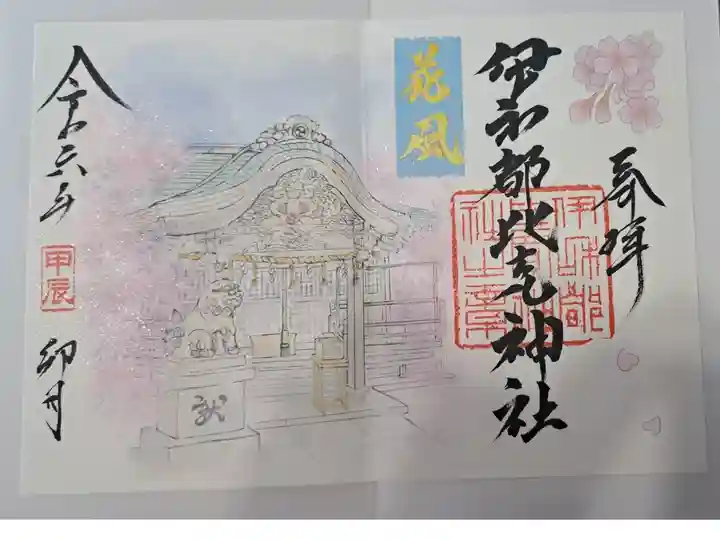 奉拝
伊和都比売神社
伊和都
比売神
社之章
花風
令和六年
甲辰
卯月
献